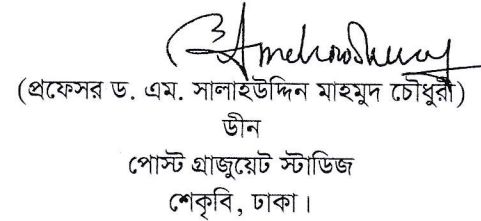 (প্রফেসর ড. এম. সালাহউদ্দিন মাহমুদ চৌধুরী)
ডীন
পোস্ট গ্রাজুয়েট স্টাডিজ
শেকৃবি, ঢাকা।